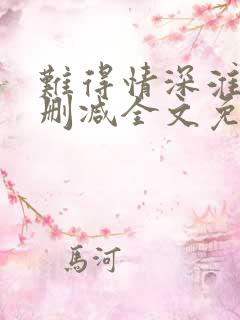 難得情深淮
删减全文免
馬河